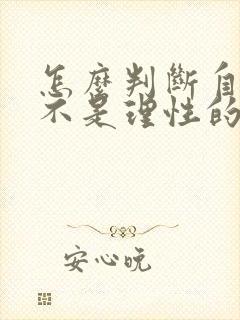 怎麼判斷自
不是理性的
安心玩